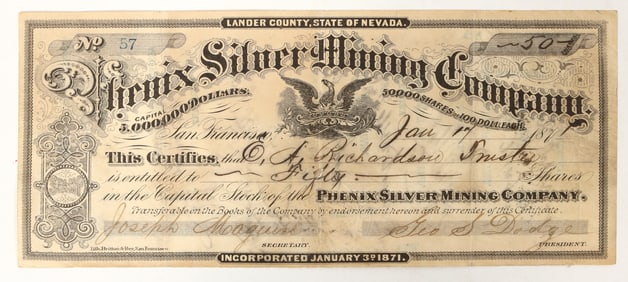 LANDER COUNTY, STATE OF NEVADA.
No 57
50
Phenix Silver Mining Company.
CAPITAL 5,000,000 DOLLARS.
50,000 SHARES 100 DOLL. EACH.
San Francisco, Jan 17 1871
This Certifies, that E. A. Richardson Trustee
is entitled to Fifty Shares
in the Capital Stock of the PHENIX SILVER MINING COMPANY.
Transferable on the Books of the Company by endorsement hereon and surrender of this Certificate.
Joseph Maguire Geo S Dodge
SECRETARY. PRESIDENT.
Lith. Britton & Rey, San Francisco
INCORPORATED JANUARY 3D 1871.